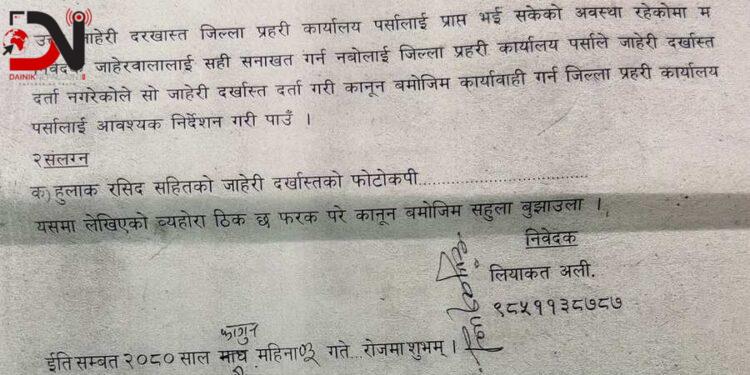 DN
DAINIK
जाहेरी दरखास्त जिल्ला प्रहरी कार्यालय पर्सालाई प्राप्त भई सकेको अवस्था रहेकोमा म
जाहेरवालालाई सही सनाखत गर्न नबोलाई जिल्ला प्रहरी कार्यालय पर्साले जाहेरी दर्खास्त
दर्ता नगरेकोले सो जाहेरी दर्खास्त दर्ता गरी कानून बमोजिम कार्यावाही गर्न जिल्ला प्रहरी कार्यालय
पर्सालाई आवश्यक निर्देशन गरी पाउँ ।
२संलग्न
क)हुलाक रसिद सहितको जाहेरी दर्खास्तको फोटोकपी........................................
यसमा लेखिएको व्यहोरा ठिक छ फरक परे कानून बमोजिम सहुला बुझाउला ।
निवेदक
लियाकत अली.
९८५११३८७८७
फागुन
ईति सम्बत २०८० साल माघ महिना०३ गते...रोजमा शुभम् ।